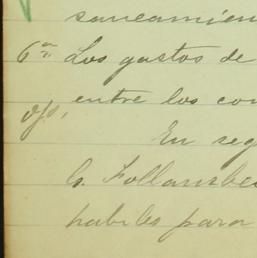 saneamien
6a Los gastos de
entre los con
ojo,
En seg
G. Follansbe
habiles para